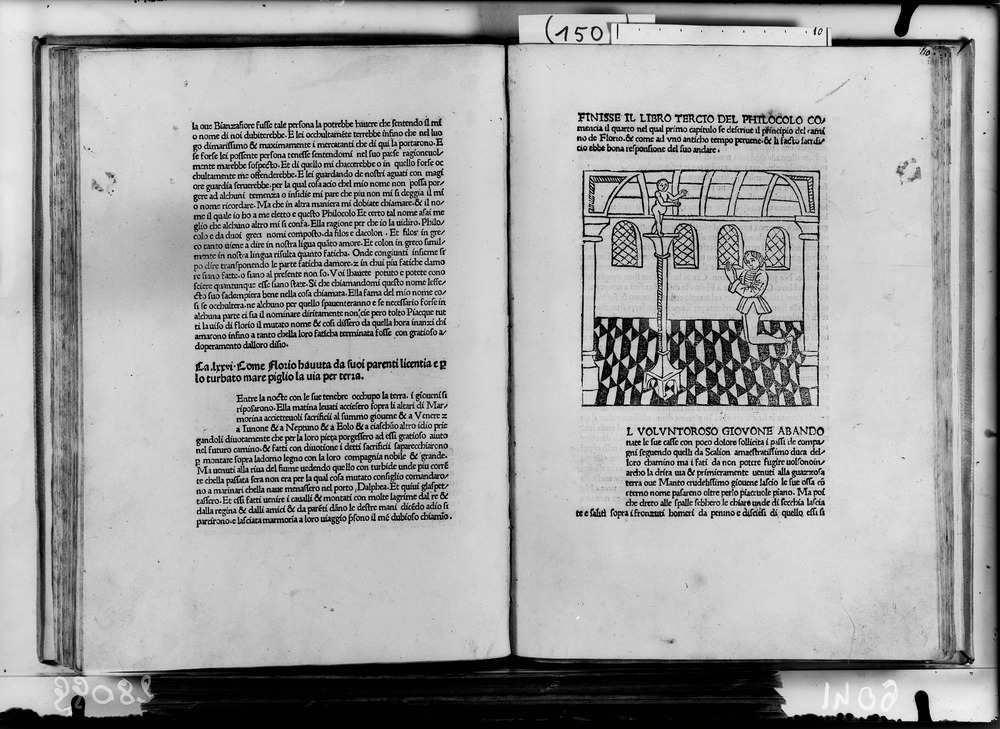 (150
10
110
la oue Bianzafiore fusse tale persona la potrebbe hauere che sentendo il mi
o nome di noi dubiterebbe. E lei occultamẽte terrebbe infino che nel luo
go dimarissimo & maximamente i mercatanti che di qui la portarono. E
se forse lei possente persona tenesse sentendomi nel suo paese ragioneuol/
mente marebbe sospecto. Et di quello mi chaccerebbe o in quello forse oc
chultamente me offenderebbe. E lei guardando de nostri aguati con magi
ore guardia seruerebbe. per la qual cosa acio chel mio nome non possa por/
gere ad alchuni temenza o insidie mi pare che piu non mi si deggia il mi
o nome ricordare. Ma che in altra maniera mi dobiate chiamare. & il no/
me il quale io ho a me electo e questo Philocolo Et certo tal nome assai me
glio che alchuno altro mi si confa. Ella ragione per che io la uidiro. Philo/
colo e da duoi greci nomi composto. da filos e dacolon. Et filos in gre/
co tanto uiene a dire in nostra ligua quãto amore. Et colon in greco simil/
mente in nostra lingua risulta quanto faticha. Onde congiunti insieme si
po dire transponendo le parte faticha damore. & in chui piu fatiche damo
re siano fatte. o siano al presente non so. Voi lhauete potuto e potete cono
sciere quantunque esse siano state. Si che chiamandomi questo nome leffe/
cto suo sadempiera bene nella cosa chiamata. Ella fama del mio nome co/
si se occultera. ne alchuno per quello spauenteranno e se necessario forse in
alchuna parte ci sia il nominare diritamente non cie pero tolto Piacque tut
ti lauiso di florio il mutato nome & cosi dissero da quella hora inanzi chi
amarono infino a tanto chella loro faticha terminata fosse con gratioso a/
doperamento dalloro disio.
Ca. lxxvi. Come florio hauuta da suoi parenti licentia e ꝑ
lo turbato mare piglio la uia per terza.
Entre la nocte con le sue tenebre occhupo la terra. i gioueni si
riposarono. Ella matina leuati acciesero sopra li altari di Mar/
morina accietteuoli sacrificii al summo gioue & a Venere &
a Iunone & a Neptuno & a Eolo & a ciaschũo altro idio prie
gandoli diuotamente che per la loro pieta porgessero ad essi gratioso aiuto
nel futuro camino. & fatti con diuotione i detti sacrificii saparecchiarono
ꝑ montare sopra ladorno legno con la loro compagnia nobile & grande.
Ma uenuti alla riua del fiume uedendo quello con turbide unde piu corrẽ
te chella passata sera non era per la qual cosa mutato consiglio comandaro/
no a marinari chella naue menassero nel porto Dalphea. Et quiui glaspet/
tassero. Et essi fatti uenire i caualli & montati con molte lagrime dal re &
dalla regina & dalli amici & da parẽti dãno le destre mani dicẽdo adio si
partirono. e lasciata marmoria a loro uiaggio p̃sono il mẽ dubioso chamĩo.
FINISSE IL LIBRO TERCIO DEL PHILOCOLO CO/
mencia il quarto nel qual primo capitulo se descriue il principio del cami
no de Florio. & come ad uno anticho tempo peruene. & li facto sacrifi/
cio ebbe bona responsione del suo andare.
L VOLVNTOROSO GIOVONE ABANDO
nate le sue casse con poco dolore sollicita i passi de compa
gni seguendo quelli da Scalion amaestratissimo duca del
loro chamino ma i fati da non potere fugire uolsonoin/
archo la drita uia & primieramente uenuti alla guazzosa
terra oue Manto crudelissimo giouene lascio le sue ossa cõ
eterno nome pasarono oltre perlo piaceuole piano. Ma poi
che dreto alle spalle sebbero le chiare unde di secchia lascia
te e saliti sopra i fronzuti homeri da penino e discesi di quello essi si
28099
6041